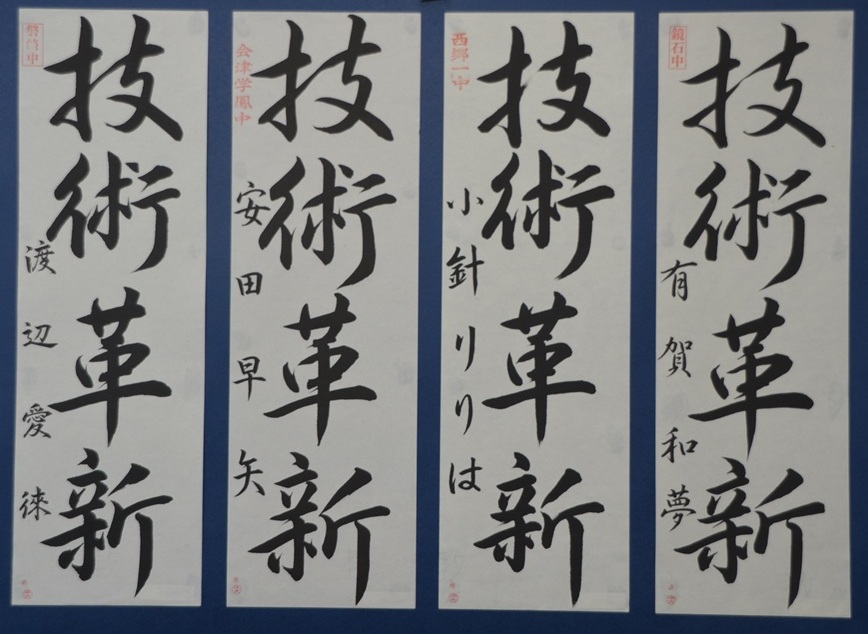 技術革新
有賀和夢
鏡石中
技術革新
小針りりは
西郷一中
技術革新
安田早矢
会津学鳳中
技術革新
渡辺愛徠